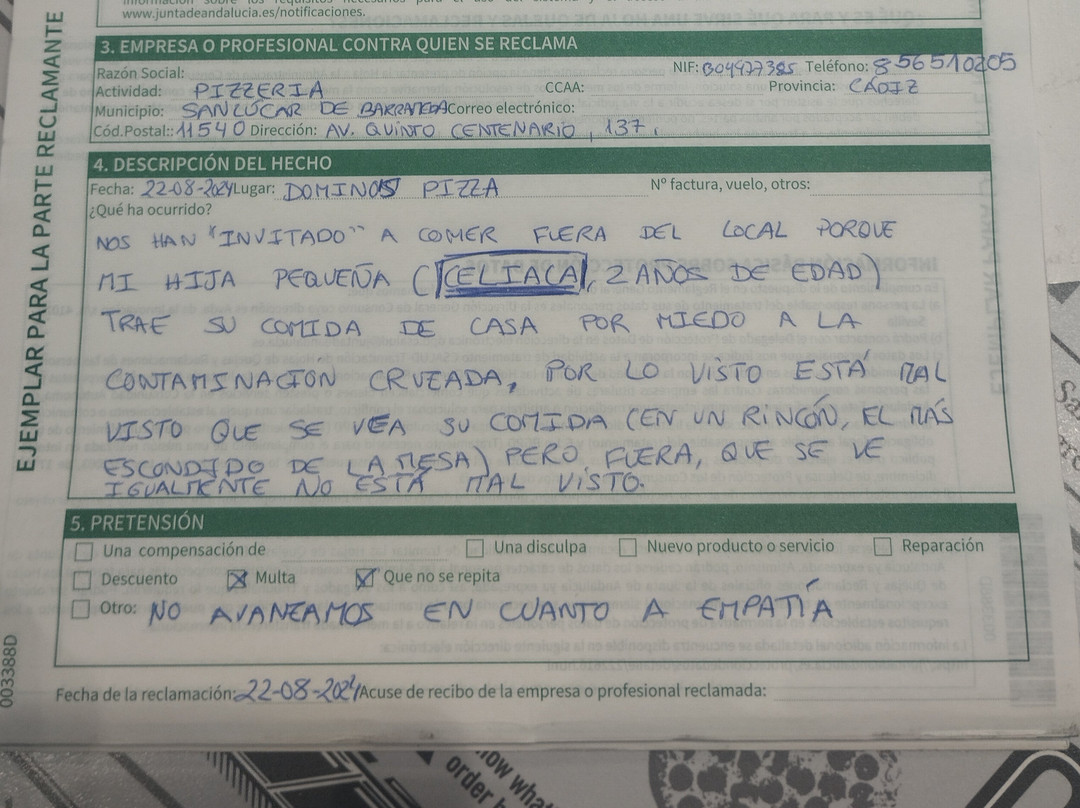 www.juntadeandalucia.es/notificaciones.
3. EMPRESA O PROFESIONAL CONTRA QUIEN SE RECLAMA
Razón Social: NIF: B04977385 Teléfono: 856510205
Actividad: PIZZERIA CCAA: Provincia: CÁDIZ
Municipio: SANLÚCAR DE BARRAMEDA Correo electrónico:
Cód.Postal.: 11540 Dirección: AV. QUINTO CENTENARIO, 137.
4. DESCRIPCIÓN DEL HECHO
Fecha: 22-08-2024 Lugar: DOMINOS PIZZA Nº factura, vuelo, otros:
¿Qué ha ocurrido?
NOS HAN "INVITADO" A COMER FUERA DEL LOCAL PORQUE
MI HIJA PEQUEÑA (CELIACA, 2 AÑOS DE EDAD)
TRAE SU COMIDA DE CASA POR MIEDO A LA
CONTAMINACION CRUZADA, POR LO VISTO ESTÁ MAL
VISTO QUE SE VEA SU COMIDA (EN UN RINCÓN, EL MÁS
ESCONDIDO DE LA MESA) PERO FUERA, QUE SE VE
IGUALMENTE NO ESTÁ MAL VISTO.
5. PRETENSIÓN
Una compensación de Una disculpa Nuevo producto o servicio Reparación
Descuento Multa Que no se repita
Otro: NO AVANZAMOS EN CUANTO A EMPATÍA
Fecha de la reclamación: 22-08-2024 Acuse de recibo de la empresa o profesional reclamada:
EJEMPLAR PARA LA PARTE RECLAMANTE
003388D
now what
order